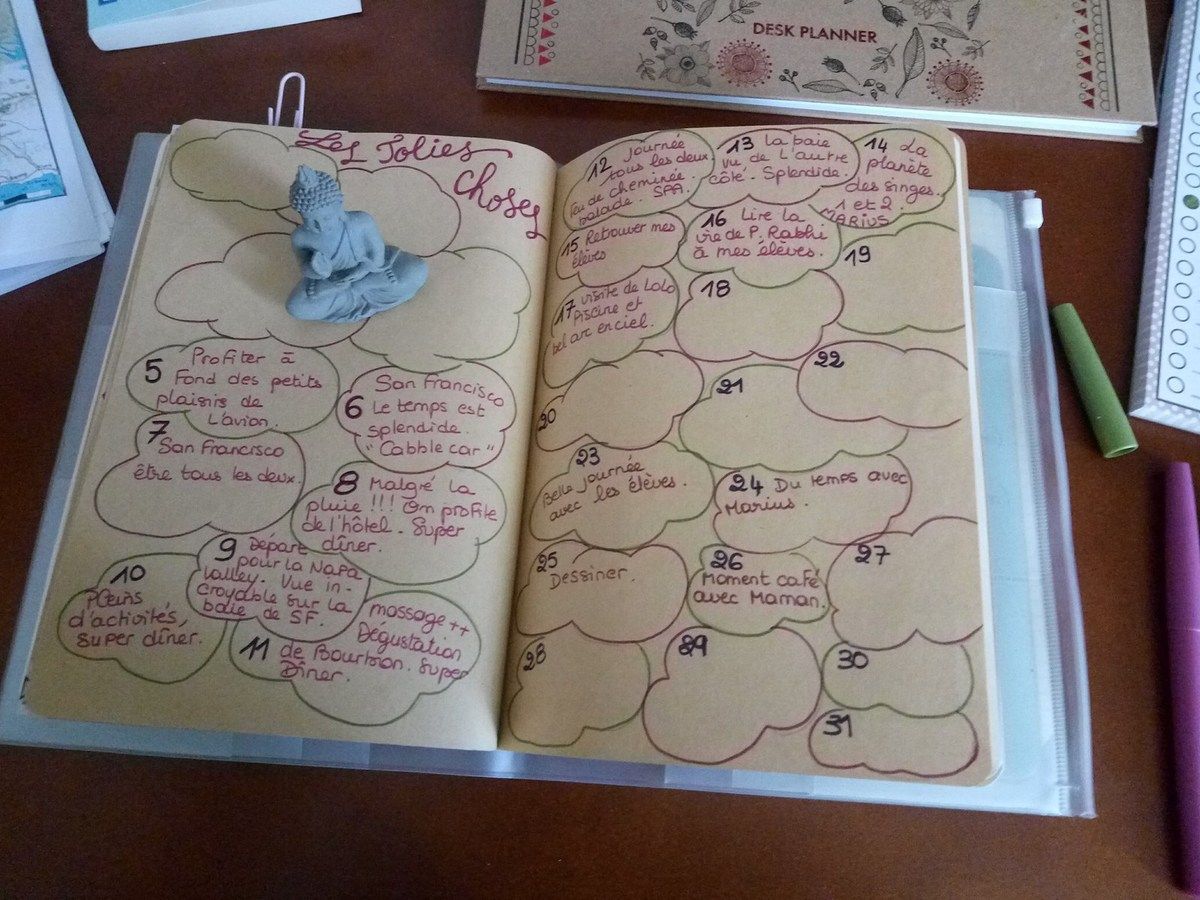 DESK PLANNER
Les Jolies
Choses
5 Profiter à
Fond des petits
plaisirs de
L'avion.
6 San Francisco
Le temps est
splendide.
"Cabble car"
7 San Francisco
être tous les deux.
8 Malgré la
pluie !!! On profite
de l'hôtel. Super
dîner.
9 Départ
pour la Napa
Valley. Vue in-
croyable sur la
baie de SF.
10
Pleins
d'activités,
super dîner.
11 massage ++
Dégustation
de Bourbon. Super
Dîner.
12 Journée
tous les deux
Feu de cheminée.
balade. SPA.
13 La baie
vu de L'autre
côté. Splendide.
14 La
planète
des singes.
1 et 2
MARIUS
15 Retrouver mes
élèves
16 Lire la
vie de P. Rabhi
à mes élèves.
17 visite de Lolo
Piscine et
bel arc en ciel.
18
19
20
21
22
23
Belle journée
avec les élèves.
24 Du temps avec
Marius.
25
Dessiner.
26
Moment café
avec Maman.
27
28
29
30
31